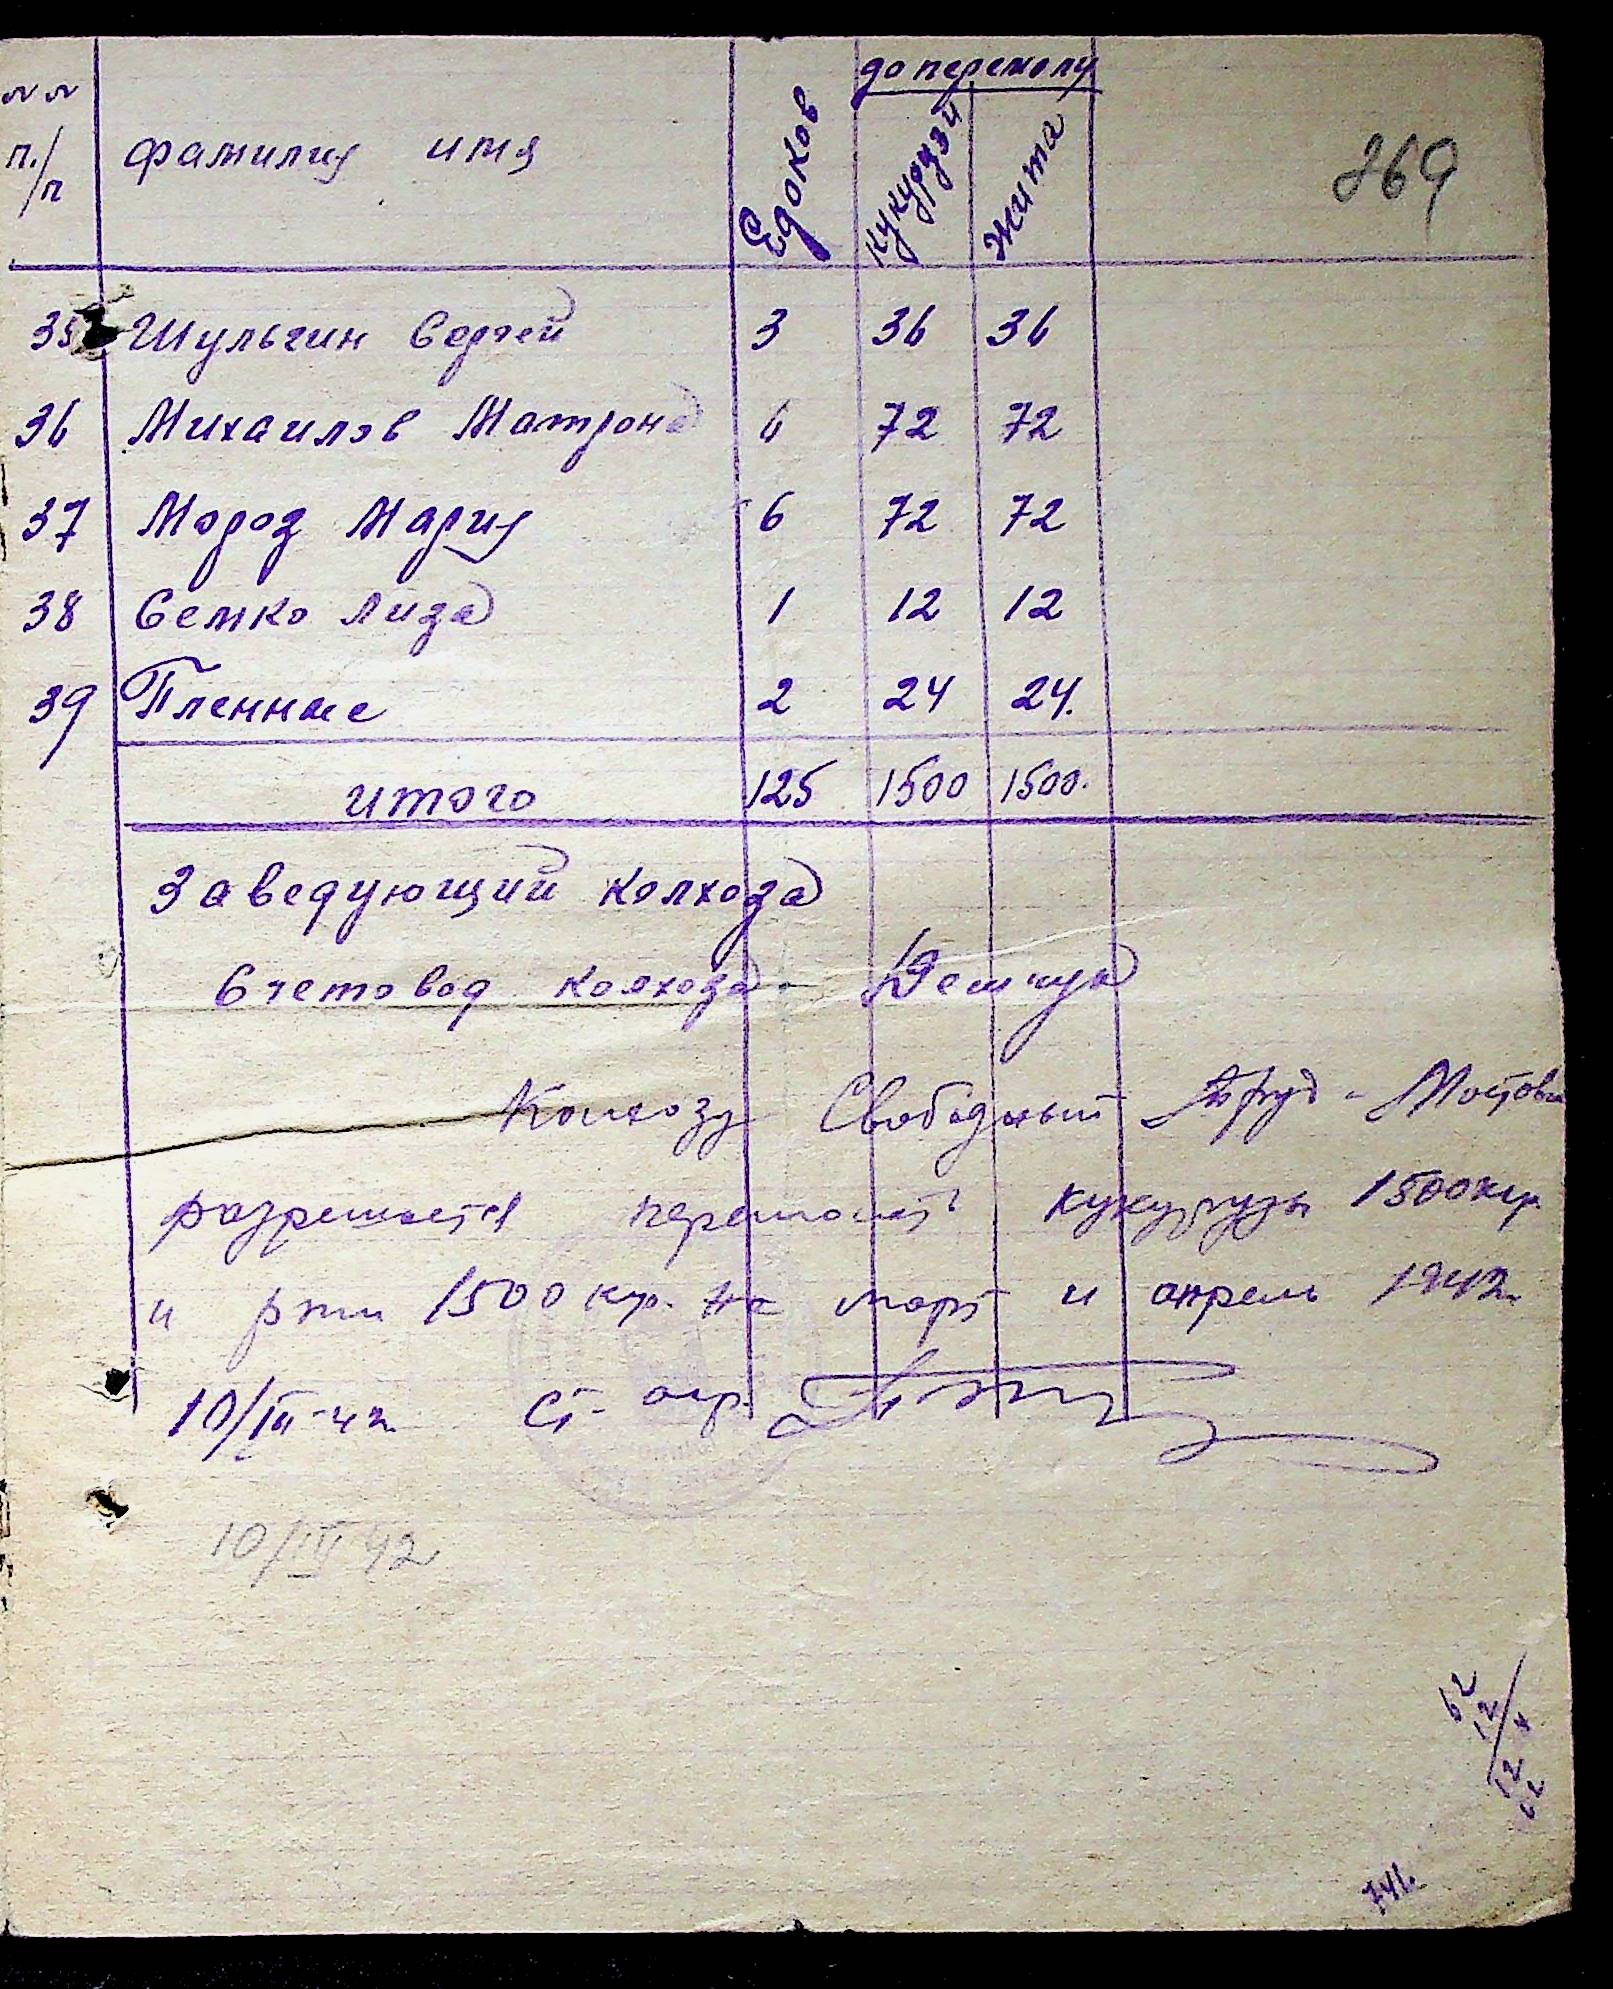 до перемолу
№ № п./п фамилия имя Едоков кукурдзи Жита
369
35 Шульгин Сергей 3 36 36
36 Михаилов Матрона 6 72 72
37 Мороз Мария 6 72 72
38 Семко Лиза 1 12 12
39 Пленные 2 24 24.
итого 125 1500 1500.
Заведующий колхоза
Счетовод колхоза
Колхозу Свободный Труд - Мостов
разрешается перемолоть кукурузы 1500 кгр
и ржи 1500 кгр. на март и апрель 1942
10/III-42 Ст. агр.
10/IV 42
62
12
12
62
741.